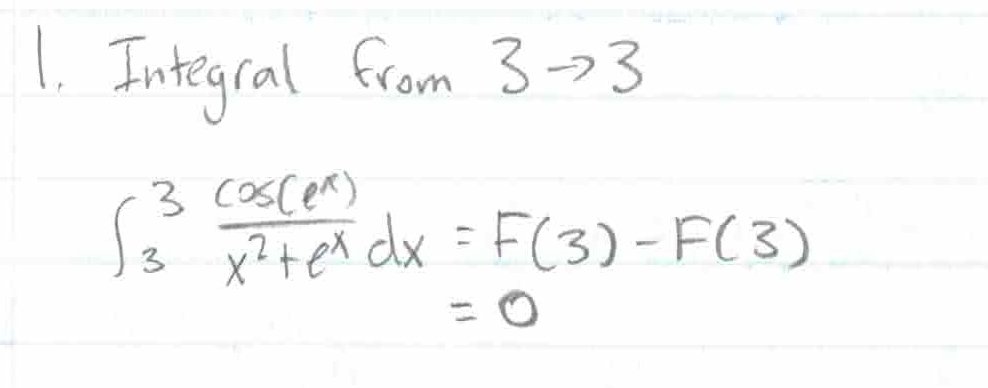 1. Integral from 3→3
∫₃³ cos(eˣ)/(x²+eˣ) dx = F(3) - F(3)
= 0